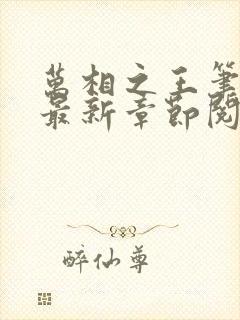 萬相之王筆
最新章節閱
醉仙尊